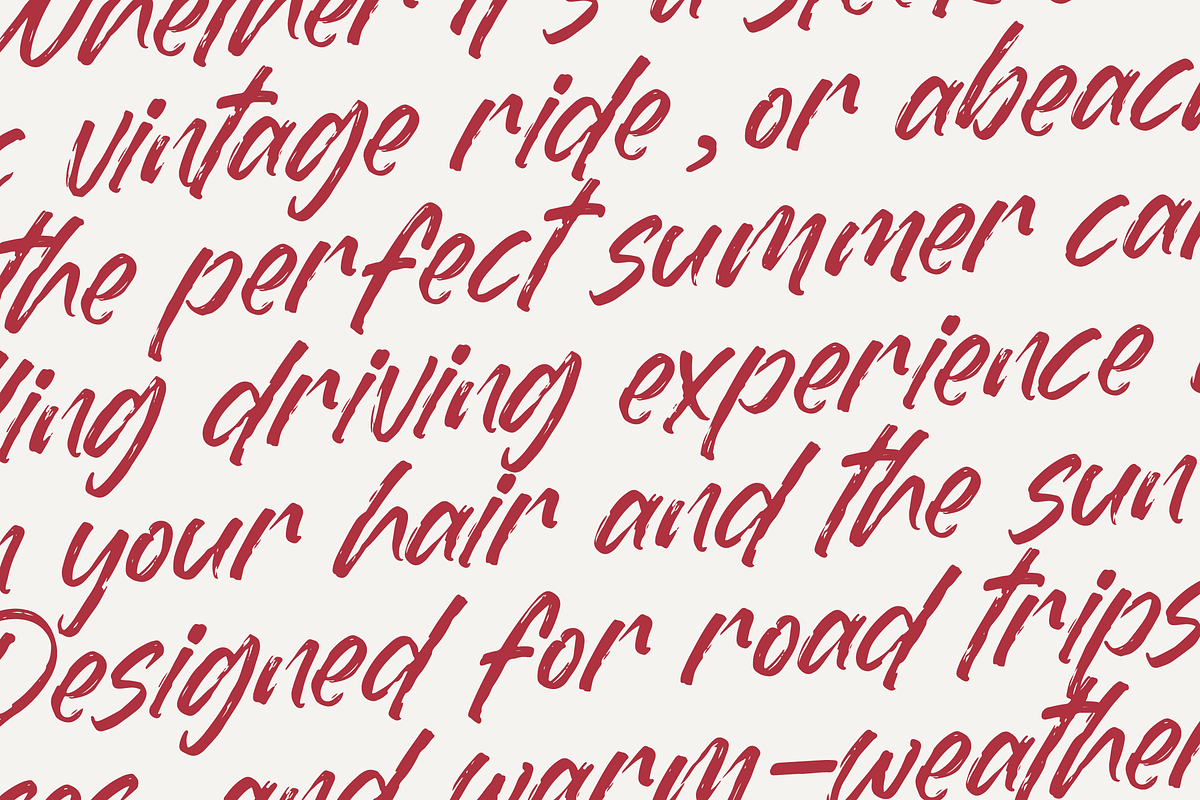 Whether it's a
vintage ride, or a beach
the perfect summer car
ling driving experience
your hair and the sun
Designed for road trips
and warm-weather